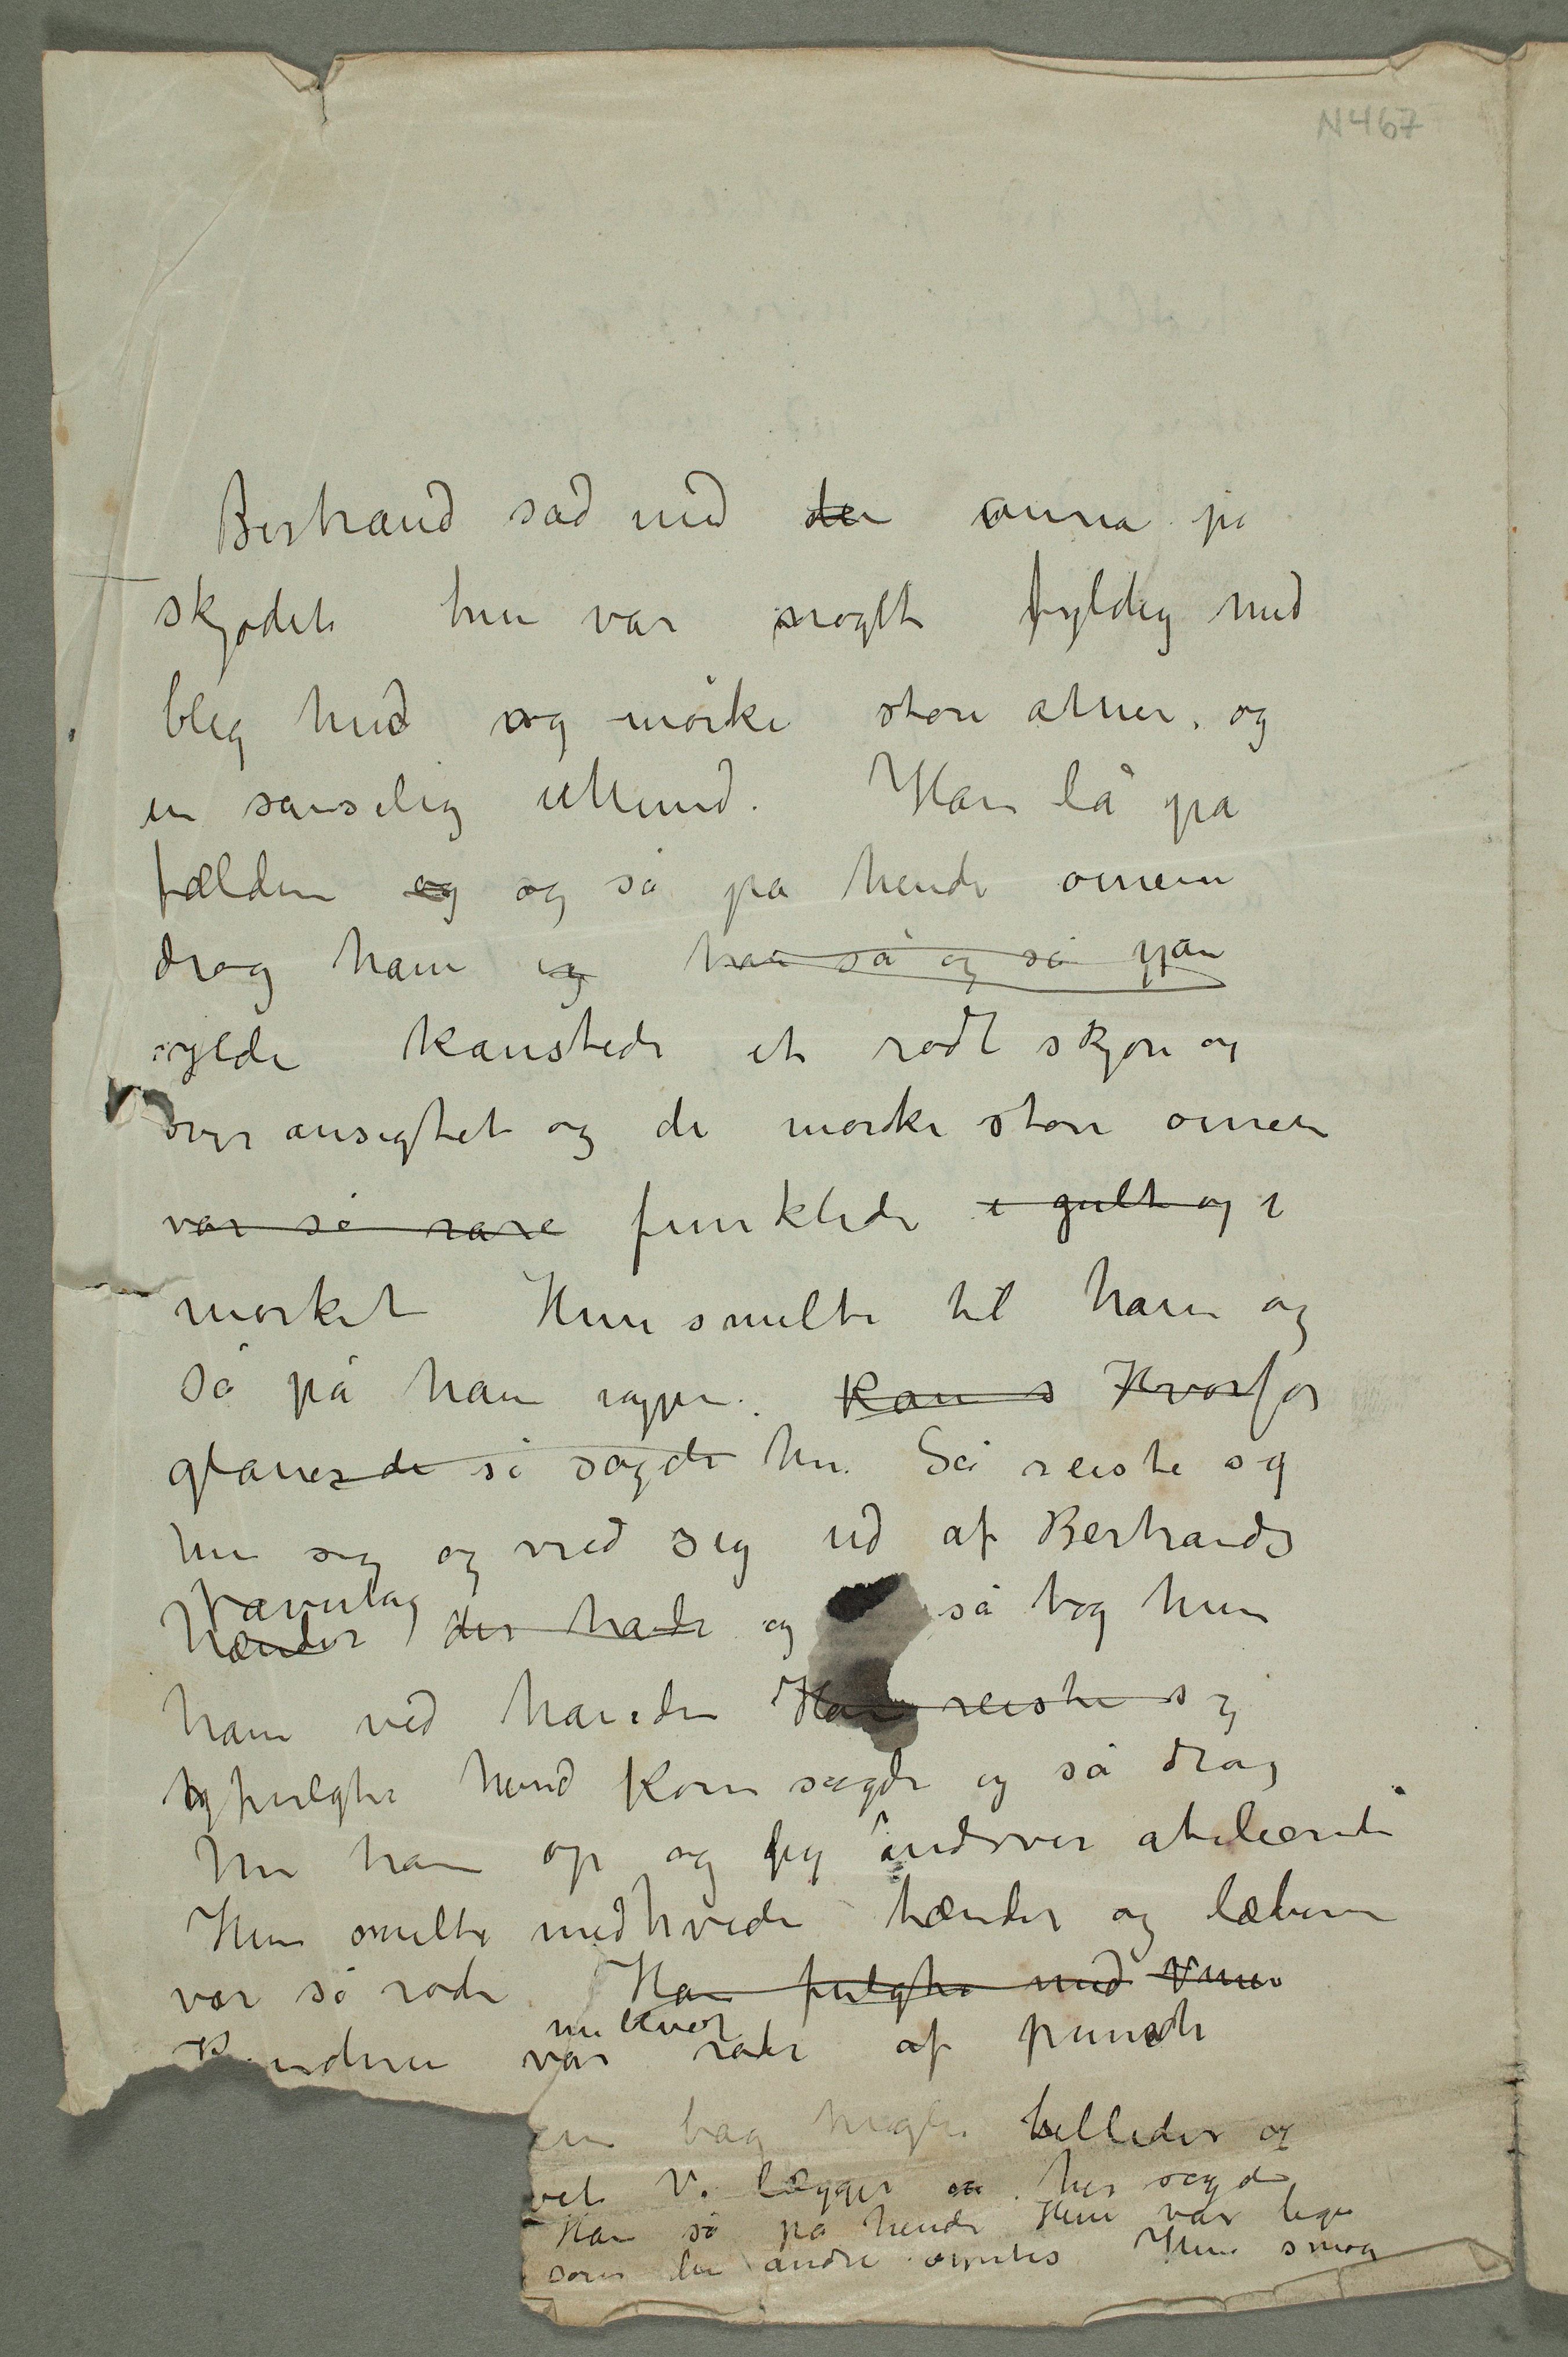 N467
Bertrand sad med den anna på
skjødet hun var noglt fyldig med
bleg hud og mørke store øiner. og
en sanselig Mund. Han lå på
fælden og og så på hende øinene
drog ham og han så og så han
kanstede et rødt skjøn og
over ansigtet og de mørke store øinene
var så rare funklede i gult og i
mørket Hun smilte til ham og
så på ham igjen. Kan s Hvorfor
glaner de så sagde hun. Så reiste og
hun sig og vred sig ud af Bertrands
Favntag
hænder der havde og så tog hun
ham ved hånden Han reiste sig
og fulgte hend Kom sagde og så drog
hun ham op og indover atelieret
Hun smilte med hvide tænder og læbene
var så røde Han fulgte med
var røde af punsch
bag nogle billeder og
Vi lægger os her sagde
Han så på hende Hun var lige
som den andre Hun smøg